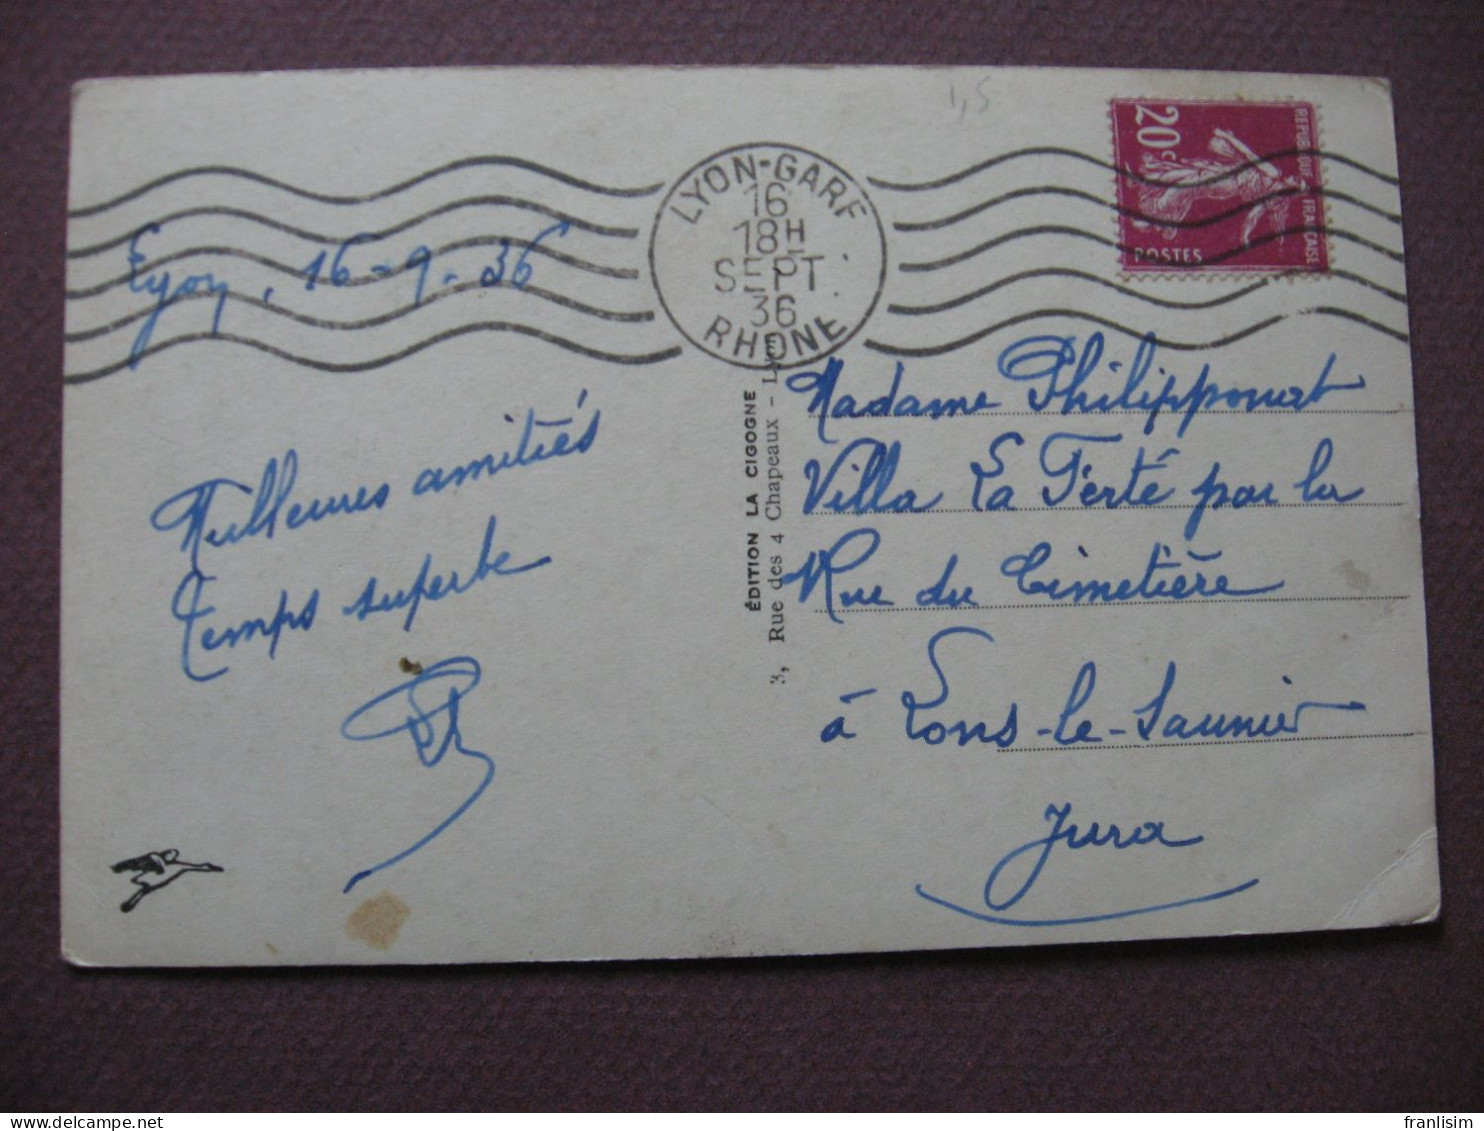 1,5
REPUBLIQUE FRANCAISE
20c
POSTES
LYON-GARE
16
18H
SEPT
36
RHONE
Lyon, 16-9-36
Meilleures amitiés
Temps superbe
ÉDITION LA CIGOGNE
3, Rue des 4 Chapeaux - Lyon
Madame
Villa La Ferté par la
Rue du Cimetière
à Lons-le-Saunier
Jura
franlisim